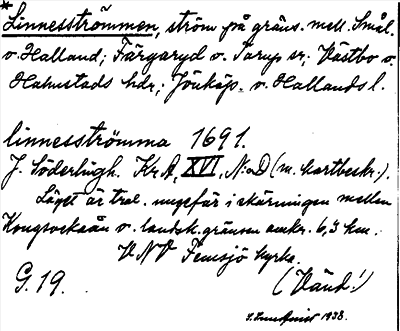 *Linnesströmmen, ström på gräns. mell. Smål.
o. Halland; Färgaryd o. Torup sr; Västbo o.
Halmstads hdr; Jönköp. o. Hallands l.
linnesströmma 1691.
J. Söderlingh. Kr.A, XVI, N:o D (m. kartbeskr.).
Läget är trol. ungefär i skärningen mellan
Kongsveksån o. landsk. gränsen omkr. 6,3 km.
VNV Femsjö kyrka.
G. 19. (Vänd!)
1938.